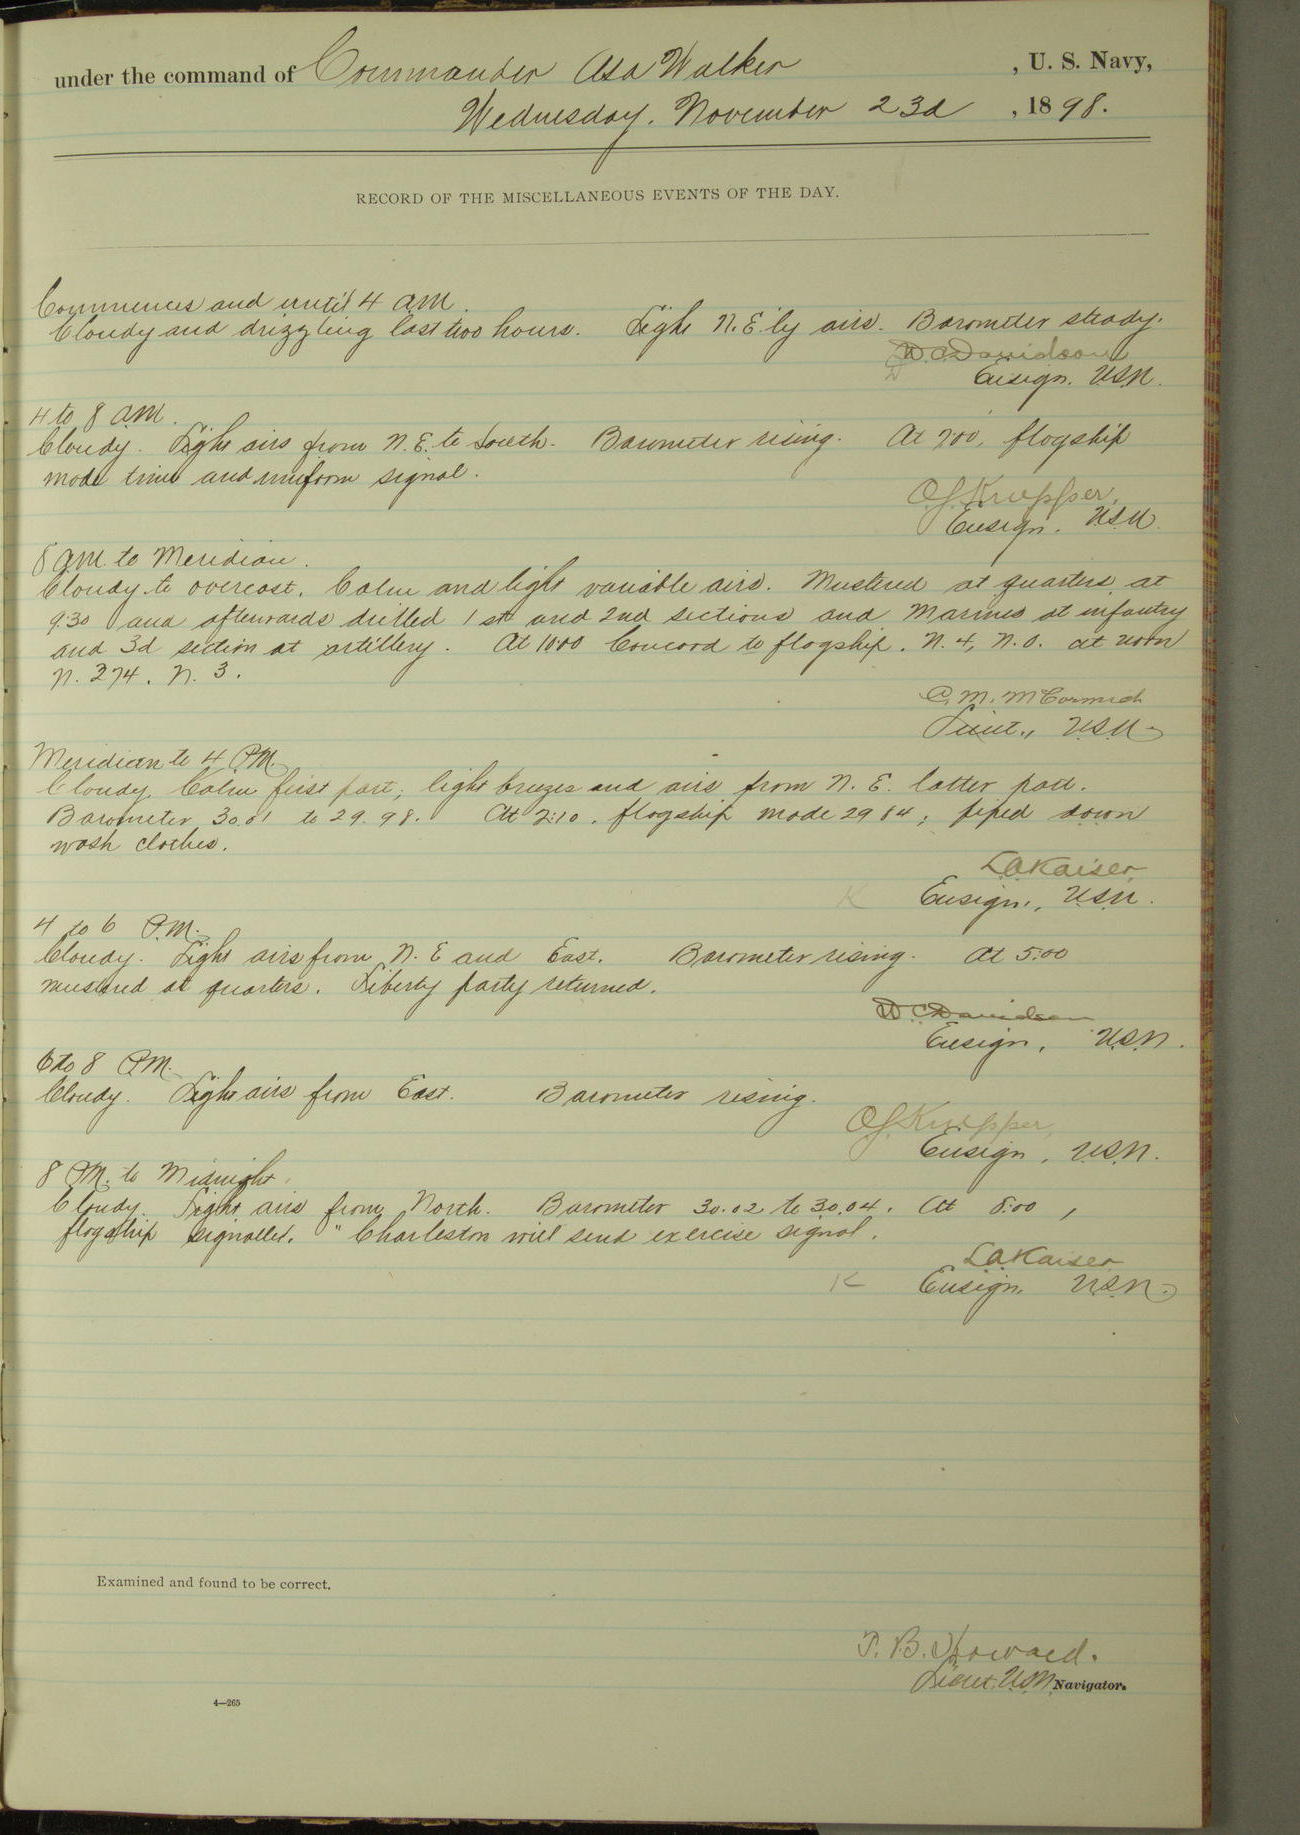 under the command of Commander Asa Walker, U. S. Navy,
Wednesday, November 23d, 1898.
RECORD OF THE MISCELLANEOUS EVENTS OF THE DAY.
Commences and until 4 AM.
Cloudy and drizzling last two hours. Light N.E.'ly airs. Barometer steady.
W.C. Davidson
Ensign. U.S.N.
4 to 8 AM.
Cloudy. Light airs from N.E. to South. Barometer rising. At 7:00, flagship
made time and uniform signal.
O.S. Knepper,
Ensign. U.S.N.
8 AM. to Meridian.
Cloudy to overcast. Calm and light variable airs. Mustered at quarters at
9:30 and afterwards drilled 1st and 2nd sections and Marines at infantry
and 3d section at artillery. At 10:00 Concord to flagship. N. 4, N. 0. at noon
N. 274. N. 3.
C. M. McCormick
Lieut., U.S.N.
Meridian to 4 P.M.
Cloudy. Calm first part; light breezes and airs from N. E. latter part.
Barometer 30.01 to 29.98. At 2:10, flagship made 2984; piped down
wash clothes.
L A Kaiser
K Ensign., U.S.N.
4 to 6 P.M.
Cloudy. Light airs from N. E and East. Barometer rising. At 5:00
mustered at quarters. Liberty party returned.
W. C. Davidson
Ensign, U.S.N.
6 to 8 P.M.
Cloudy. Light airs from East. Barometer rising.
O.S. Knepper,
Ensign, U.S.N.
8 P.M. to Midnight.
Cloudy. Light airs from North. Barometer 30.02 to 30.04. At 8:00,
flagship signalled. "Charleston will send exercise signal.
L A Kaiser
K Ensign. U.S.N.
Examined and found to be correct.
T. B. Howard.
Lieut. U.S.N. Navigator.
4—265